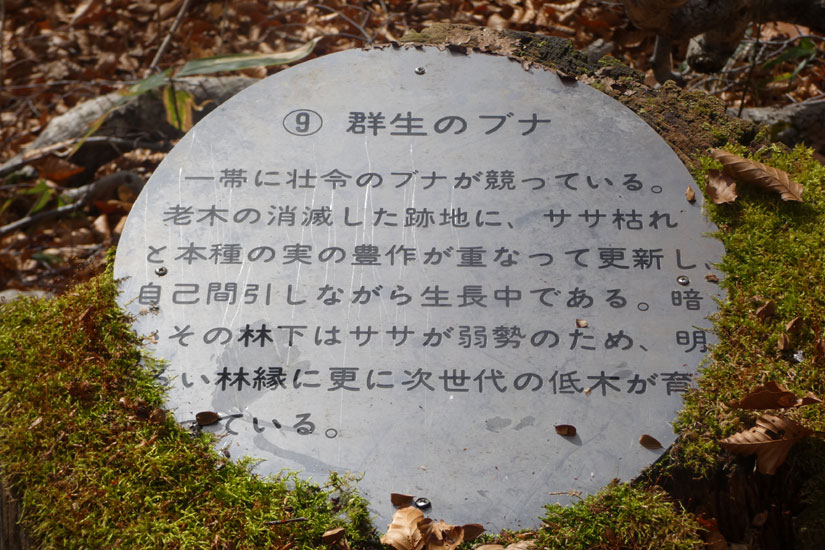 ⑨ 群生のブナ
一帯に壮令のブナが競っている。
老木の消滅した跡地に、ササ枯れ
と本種の実の豊作が重なって更新し、
自己間引しながら生長中である。暗
その林下はササが弱勢のため、明
い林縁に更に次世代の低木が育
ている。